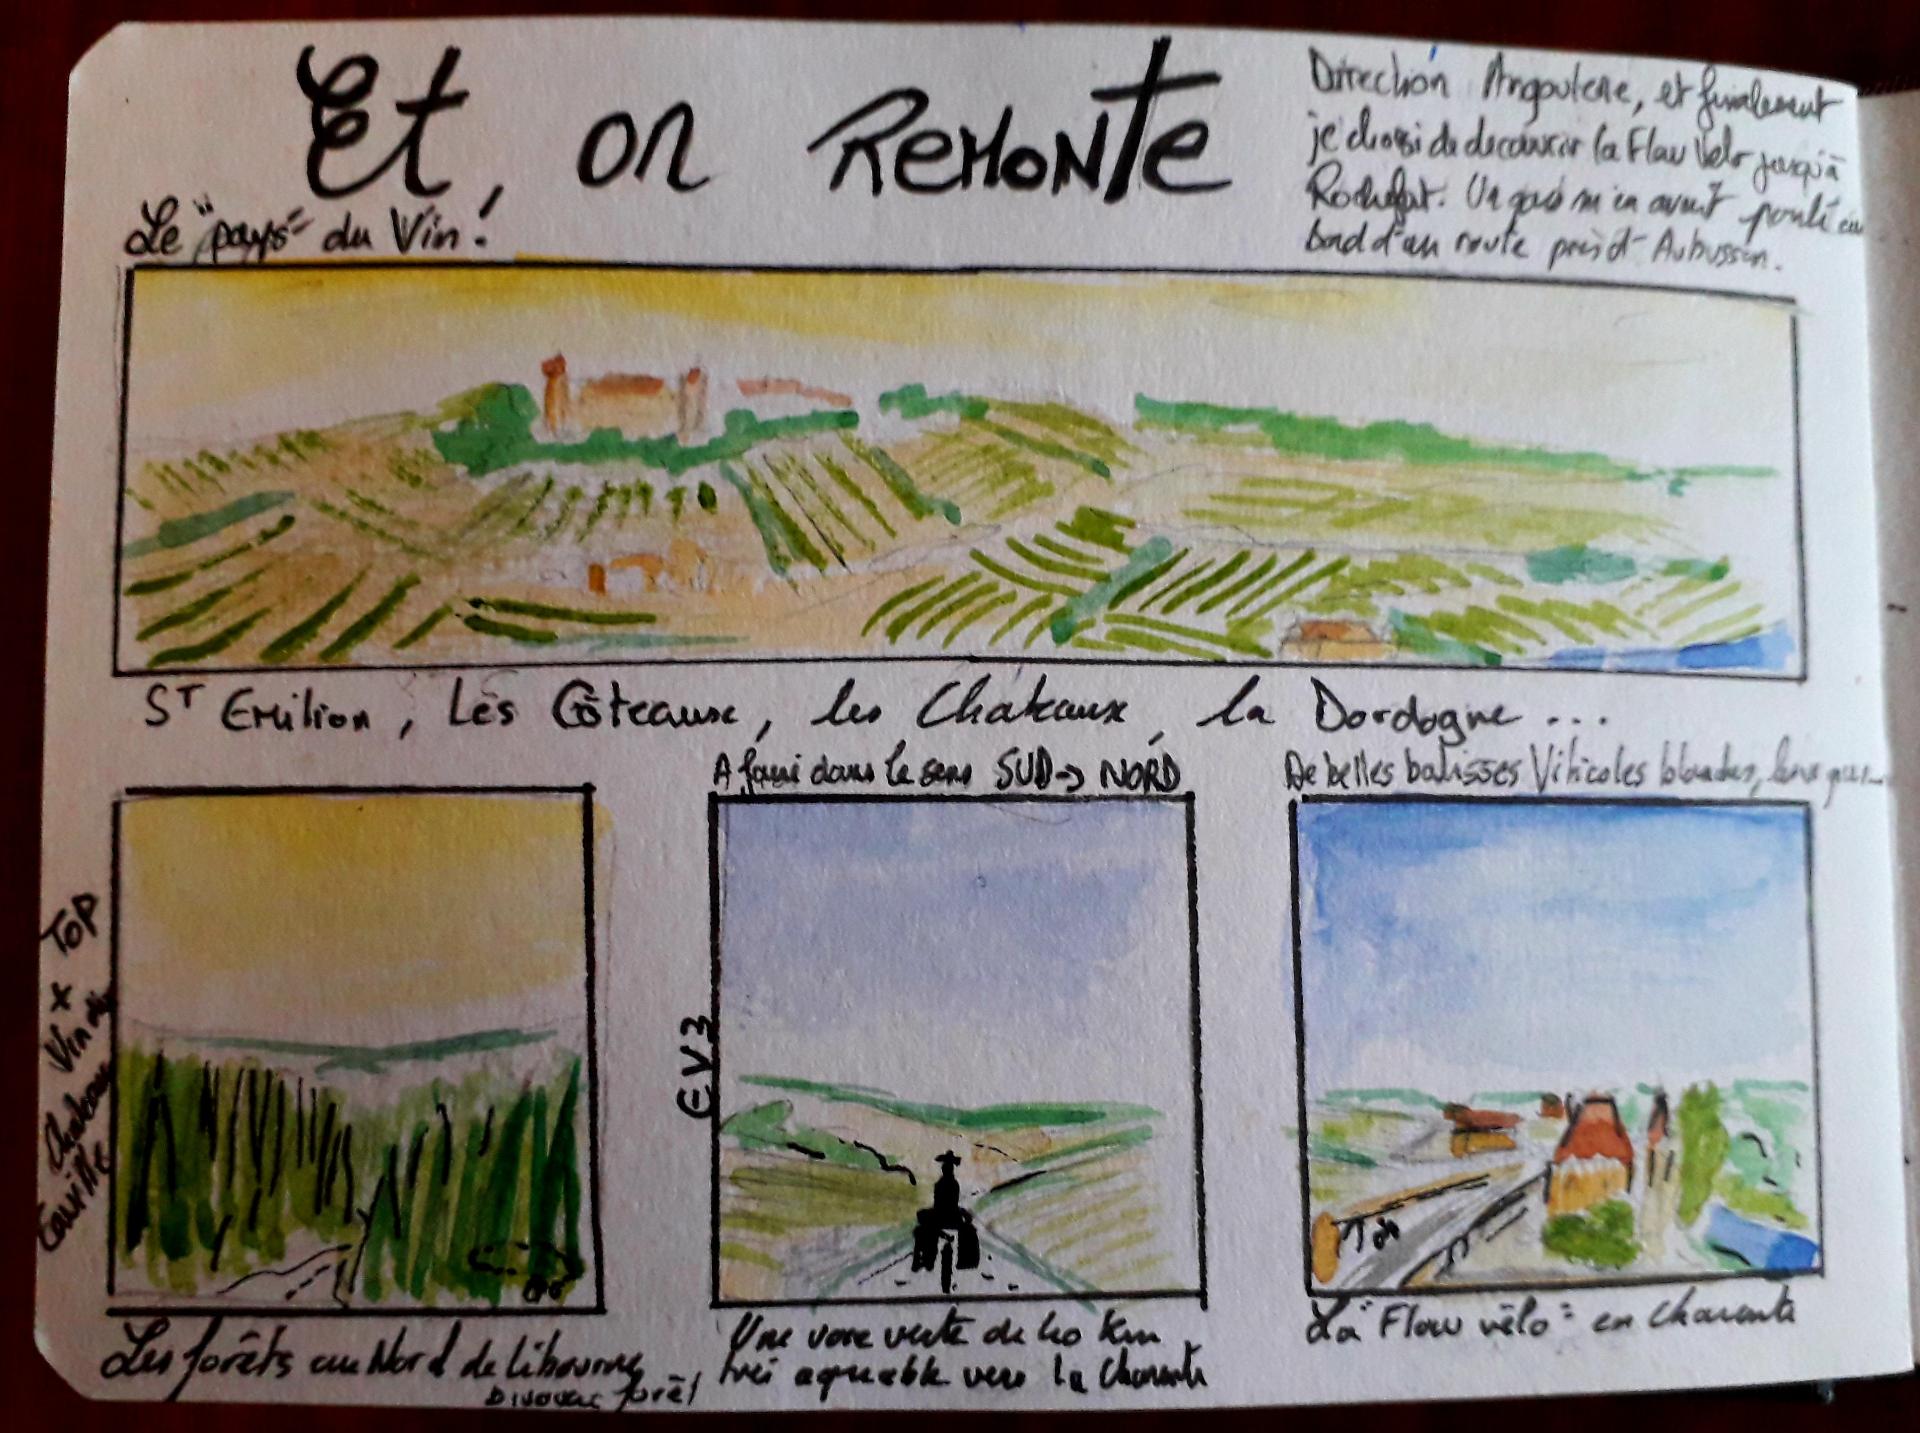 Et, on REMONTE
Direction Angoulene, et finalement
je choisi de decouvrir la Flow Vélo jusqu'à
Rochefort. Un gars m'en avait parlé au
bord d'un route près d'Aubusson.
Le "pays" du Vin !
ST EMilion, Les Côteaux, les Châteaux, la Dordogne ...
A faire dans le sens SUD → NORD
De belles batisses Viticoles blondes,
TOP
Vin de
Chateau
EV3
Les forêts au Nord de Libourne
Bivouac forêt
Une voie verte de 40 km
très agréable vers la Charente
La "Flow vélo" en Charente